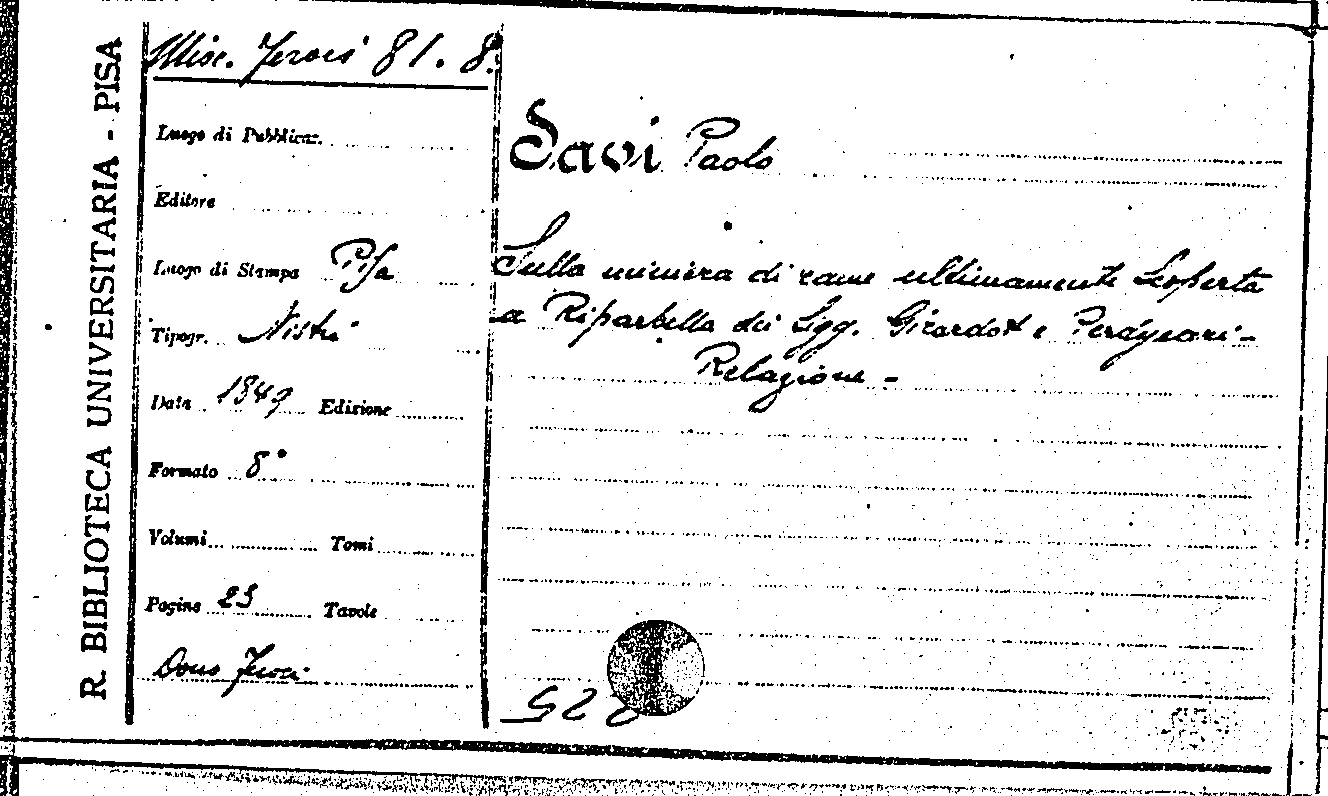 R. BIBLIOTECA UNIVERSITARIA - PISA
Misc. Feroci 81. 8.
Luogo di Pubblicaz.
Editore
Luogo di Stampa Pisa
Tipogr. Nistri
Data 1849 Edizione
Formato 8°
Volumi Tomi
Pagine 23 Tavole
Dono Feroci
Savi Paolo
Sulla miniera di rame ultimamente scoperta
a Riparbella dei Sigg. Girardot e
Relazione -